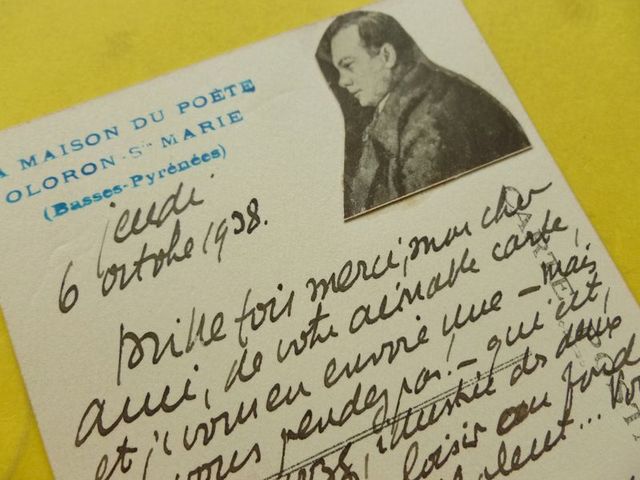 A MAISON DU POÈTE
OLORON-Ste MARIE
(Basses-Pyrénées)
jeudi
6 octobre 1938.
Mille fois merci, mon cher
ami, de votre aimable carte,
et j'vous en envoie une – mais
vous pendez pas! – qui est,
illustrée des deux
loisir au fond
CARTE